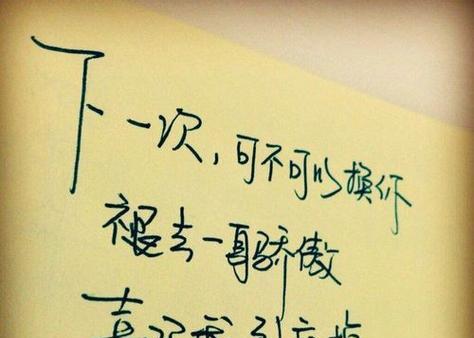 下一次，可不可以换你
褪去一身骄傲
喜